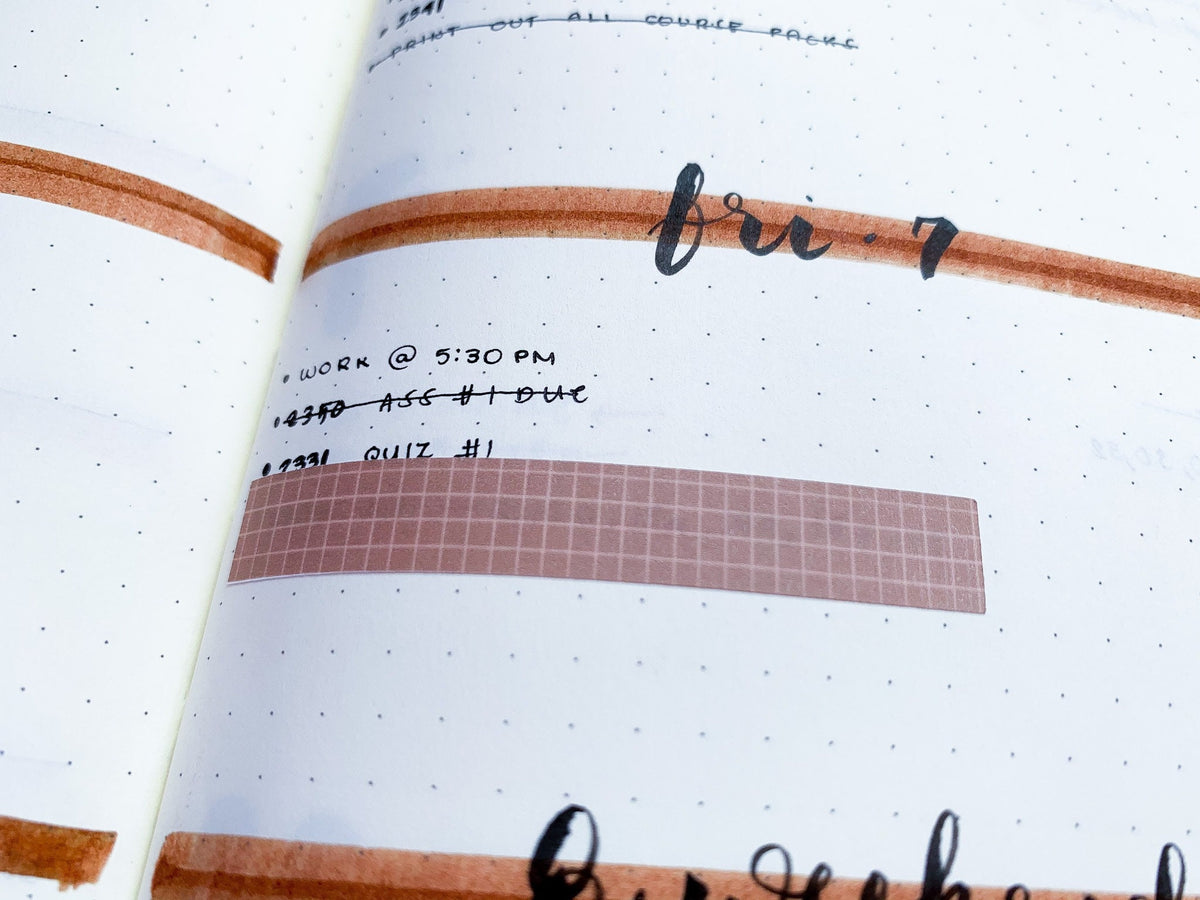 • 2341
• PRINT OUT ALL COURSE PACKS
fri • 7
• WORK @ 5:30 PM
• 2350 ASS #1 DUE
• 2331 QUIZ #1
weekend